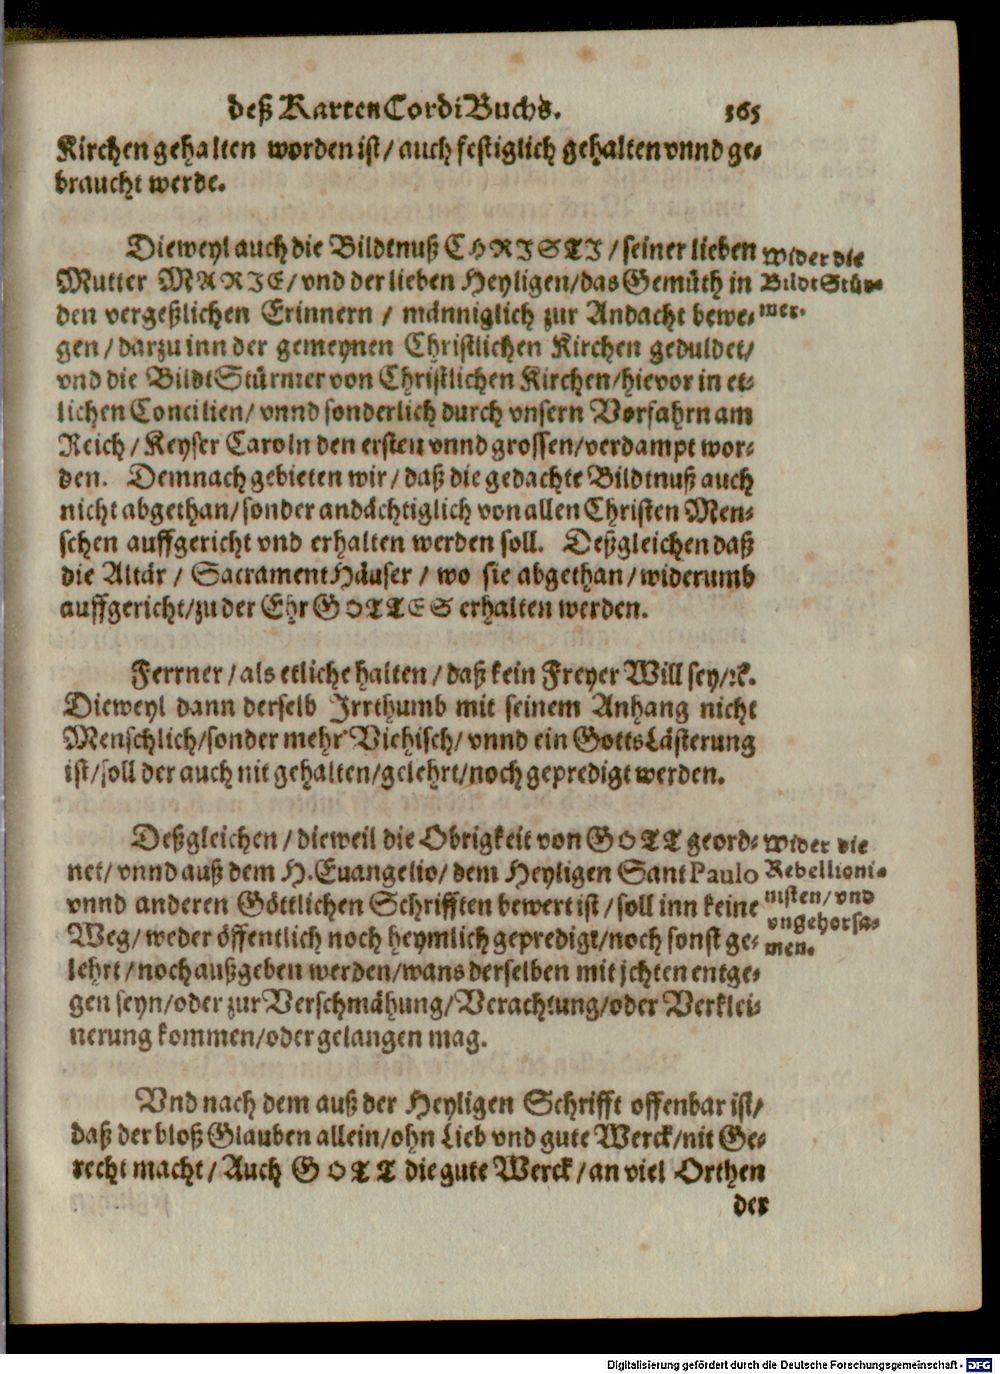 deß KartenCordiBuchs. 365
Kirchen gehalten worden ist/ auch festiglich gehalten vnnd ge-
braucht werde.
Dieweyl auch die Bildtnuß CHRISTI/ seiner lieben
Mutter MARIE/ vnd der lieben Heyligen/ das Gemüth in
den vergeßlichen Erinnern / männiglich zur Andacht bewe-
gen/ darzu inn der gemeynen Christlichen Kirchen geduldet/
vnd die BildtStürmer von Christlichen Kirchen/ hievor in et-
lichen Concilien/ vnnd sonderlich durch vnsern Vorfahrn am
Reich/ Keyser Caroln den ersten vnnd grossen/ verdampt wor-
den. Demnach gebieten wir/ daß die gedachte Bildtnuß auch
nicht abgethan/ sonder andächtiglich von allen Christen Men-
schen auffgericht vnd erhalten werden soll. Deßgleichen daß
die Altär / SacramentHäuser / wo sie abgethan/ widerumb
auffgericht/ zu der Ehr GOTTES erhalten werden.
Wider die
BildtStür-
mer.
Ferrner/ als etliche halten/ daß kein Freyer Will sey/ ꝛc.
Dieweyl dann derselb Irrthumb mit seinem Anhang nicht
Menschlich/ sonder mehr Viehisch/ vnnd ein GottsLästerung
ist/ soll der auch nit gehalten/ gelehrt/ noch gepredigt werden.
Deßgleichen/ dieweil die Obrigkeit von GOTT geord-
net/ vnnd auß dem H. Euangelio/ dem Heyligen Sant Paulo
vnnd anderen Göttlichen Schrifften bewert ist/ soll inn keine
Weg/ weder öffentlich noch heymlich gepredigt/ noch sonst ge-
lehrt/ noch außgeben werden/ wans derselben mit ichten entge-
gen seyn/ oder zur Verschmähung/ Verachtung/ oder Verklei-
nerung kommen/ oder gelangen mag.
Wider die
Rebellioni-
nisten/ vnd
vngehorsa-
men.
Vnd nach dem auß der Heyligen Schrifft offenbar ist/
daß der bloß Glauben allein/ ohn Lieb vnd gute Werck/ nit Ge-
recht macht/ Auch GOTT die gute Werck/ an viel Orthen
der
Digitalisierung gefördert durch die Deutsche Forschungsgemeinschaft - DFG